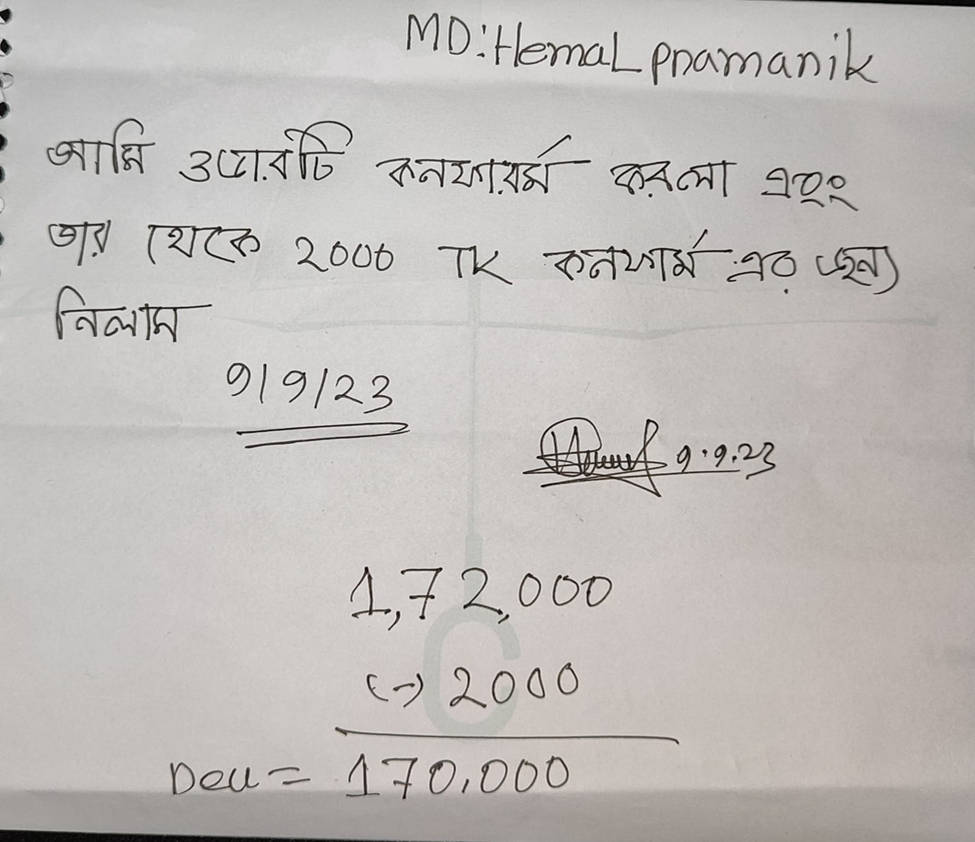 MD:Hemal pnamanik
আমি ওয়ারটি কনফারর্ম করলা এবং
তার থেকে 2000 TK কনফার্ম এর জন্য
নিলাম
9/9/23
9.9.23
1,72,000
(-) 2000
Deu = 170,000